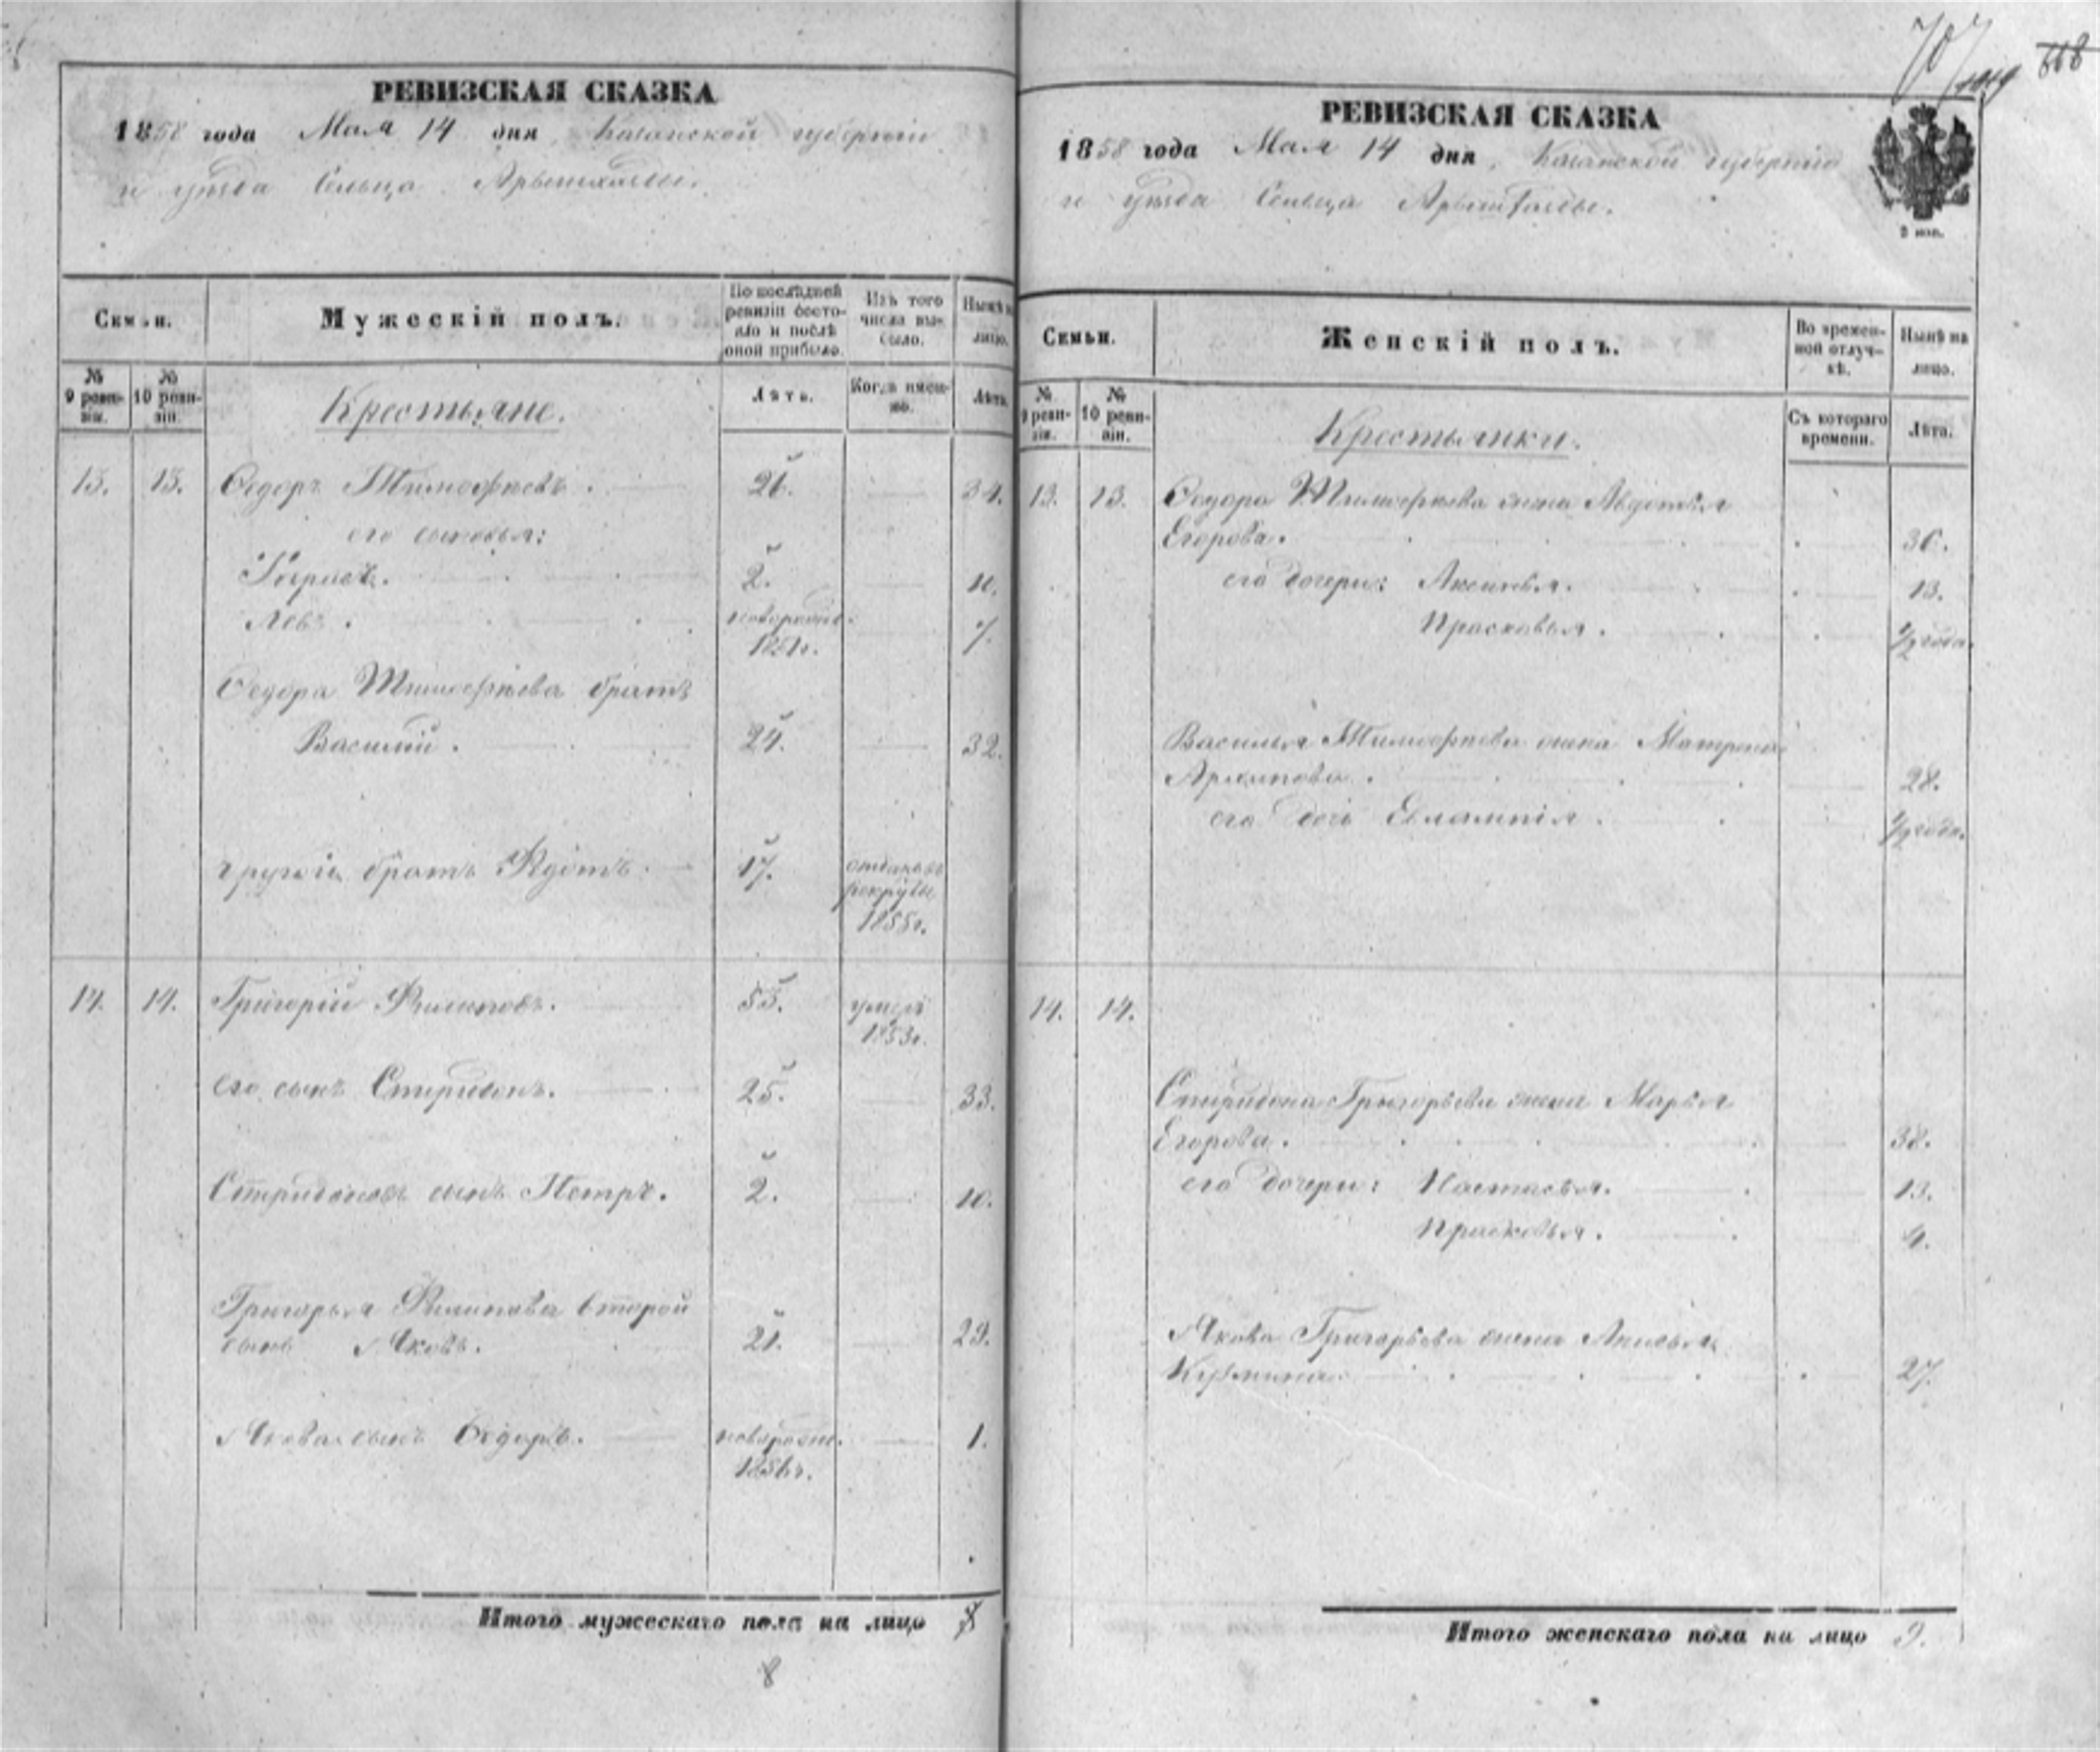 707/1019 668
РЕВИЗСКАЯ СКАЗКА
1858 года Мая 14 дня, Казанской губернии
и уѣзда Сельца
Семьи.
Мужескій полъ.
По послѣдней ревизіи состояло и послѣ оной прибыло.
Изъ того числа выбыло.
Нынѣ на лицо.
№ 9 ревизіи.
№ 10 ревизіи.
Крестьяне.
Лѣтъ.
Когда именно.
Лѣта.
13. 13. Ѳедоръ Тимофѣевъ. 26. 34.
его сыновья:
2. 10.
Левъ. новорожд. 7.
1851г.
Ѳедора Тимофѣева братъ
Василій. 24. 32.
другой братъ Ѳедотъ. 17. отданъ въ
рекруты
1855г.
14. 14. Григорій Филиповъ. 55. умеръ
1853г.
его сынъ Спиридонъ. 25. 33.
Спиридоновъ сынъ Петръ. 2. 10.
Григорья Филипова второй
сынъ Яковъ. 21. 29.
Якова сынъ Ѳедоръ. новорожд. 1.
1856г.
Итого мужескаго пола на лицо 8
8
РЕВИЗСКАЯ СКАЗКА
1858 года Мая 14 дня, Казанской губерніи
и уѣзда Сельца
2 коп.
Семьи.
Женскій полъ.
Во временной отлучкѣ.
Нынѣ на лицо.
№ 9 ревизіи.
№ 10 ревизіи.
Крестьянки.
Съ котораго времени.
Лѣта.
13. 13. Ѳедора Тимофѣева жена Авдотья
Егорова. 36.
его дочери: Аксинья. 13.
Прасковья. 1/2 года.
Василья Тимофѣева жена Матрена
Архипова. 28.
его дочь Евлампія. 1/2 года.
14. 14.
Спиридона Григорьева жена Марья
Егорова. 38.
его дочери: Настасья. 13.
Прасковья. 4.
Якова Григорьева жена
Кузмина. 27.
Итого женскаго пола на лицо 9.